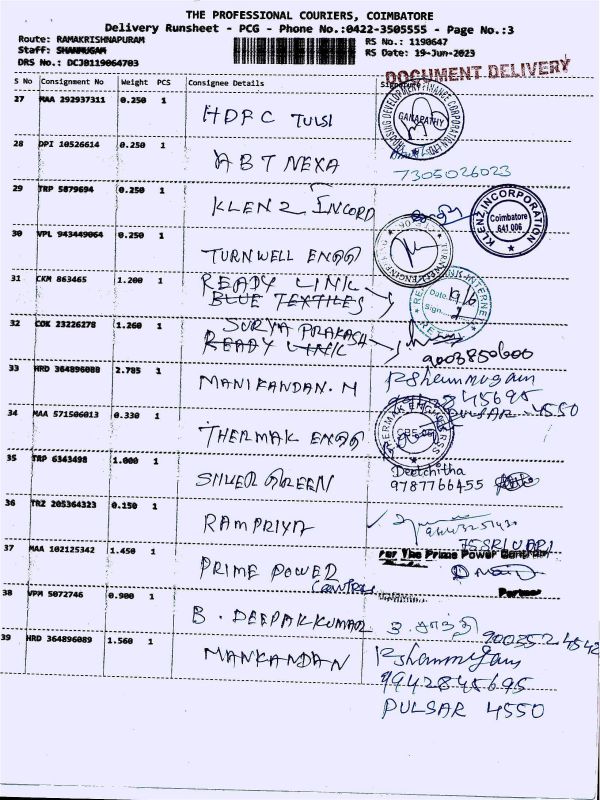 THE PROFESSIONAL COURIERS, COIMBATORE
Delivery Runsheet - PCG - Phone No.:0422-3505555 - Page No.:3
Route: RAMAKRISHNAPURAM RS No.: 1190647
Staff: SHANMUGAM RS Date: 19-Jun-2023
DRS No.: DCJ0119064703
DOCUMENT DELIVERY
S No Consignment No Weight PCS Consignee Details
27 MAA 292937311 0.250 1 HDFC TULSI
HOUSING DEVELOPMENT FINANCE CORPORATION LTD
GANAPATHY
28 DPI 10526614 0.250 1 ABT NEXA
7305026023
29 TRP 5879694 0.250 1 KLENZ INCORD
KLENZ INCORPORATION
Coimbatore
641 006
30 VPL 943449064 0.250 1 TURNWELL ENGG
31 CKM 863465 1.200 1 READY LINK
BLUE TEXTILES
Date: 19/6
Sign:
32 COK 23226278 1.260 1 SURYA PRAKASH
READY LINK
9003850600
33 HRD 364896088 2.785 1 MANIKANDAN. M
RShanmugam
845695
PULSAR 4550
34 MAA 571506013 0.330 1 THERMAK ENGG
35 TRP 6343498 1.000 1 SILVER GREEN
Deetchitha
9787766455
36 TRZ 205364323 0.150 1 RAMPRIYA
75 SRI VARI
37 MAA 102125342 1.450 1 PRIME POWER
CONTROL
For The Prime Power Controls
Partner
38 VPM 5072746 0.900 1 B. DEEPAK KUMAR
39 HRD 364896089 1.560 1 MANKANDAN
RShanmugam
9942845695
PULSAR 4550